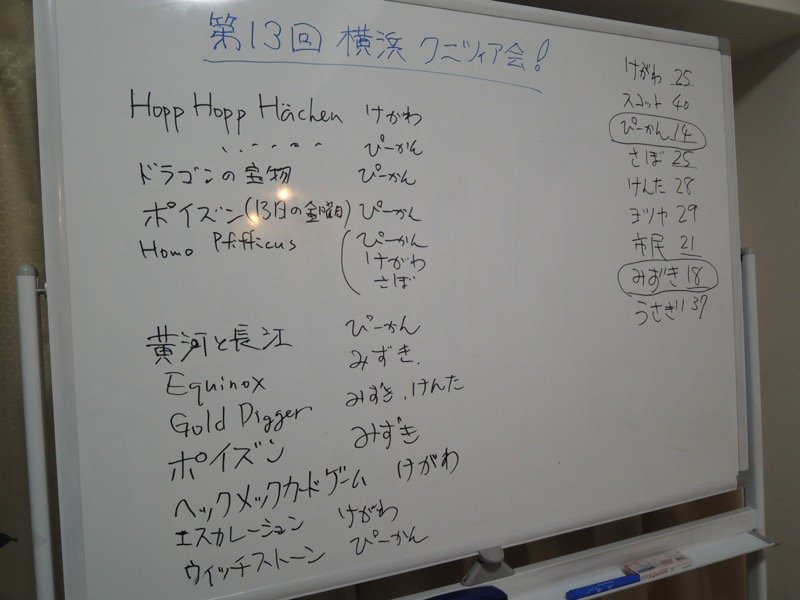 第13回 横浜 クニツィア会!
Hopp Hopp Hächen けがわ
〃 ぴーかん
ドラゴンの宝物 ぴーかん
ポイズン(13日の金曜日) ぴーかん
Homo Pfifficus ぴーかん
けがわ
さぼ
黄河と長江 ぴーかん
Equinox みずき.
Gold Digger みずき.けんた
ポイズン みずき
ヘックメックカードゲーム けがわ
エスカレーション けがわ
ウィッチストーン ぴーかん
けがわ 25
スコット 40
ぴーかん 14
さぼ 25
けんた 28
ヨツヤ 29
市民 21
みずき 18
うさぎ 37